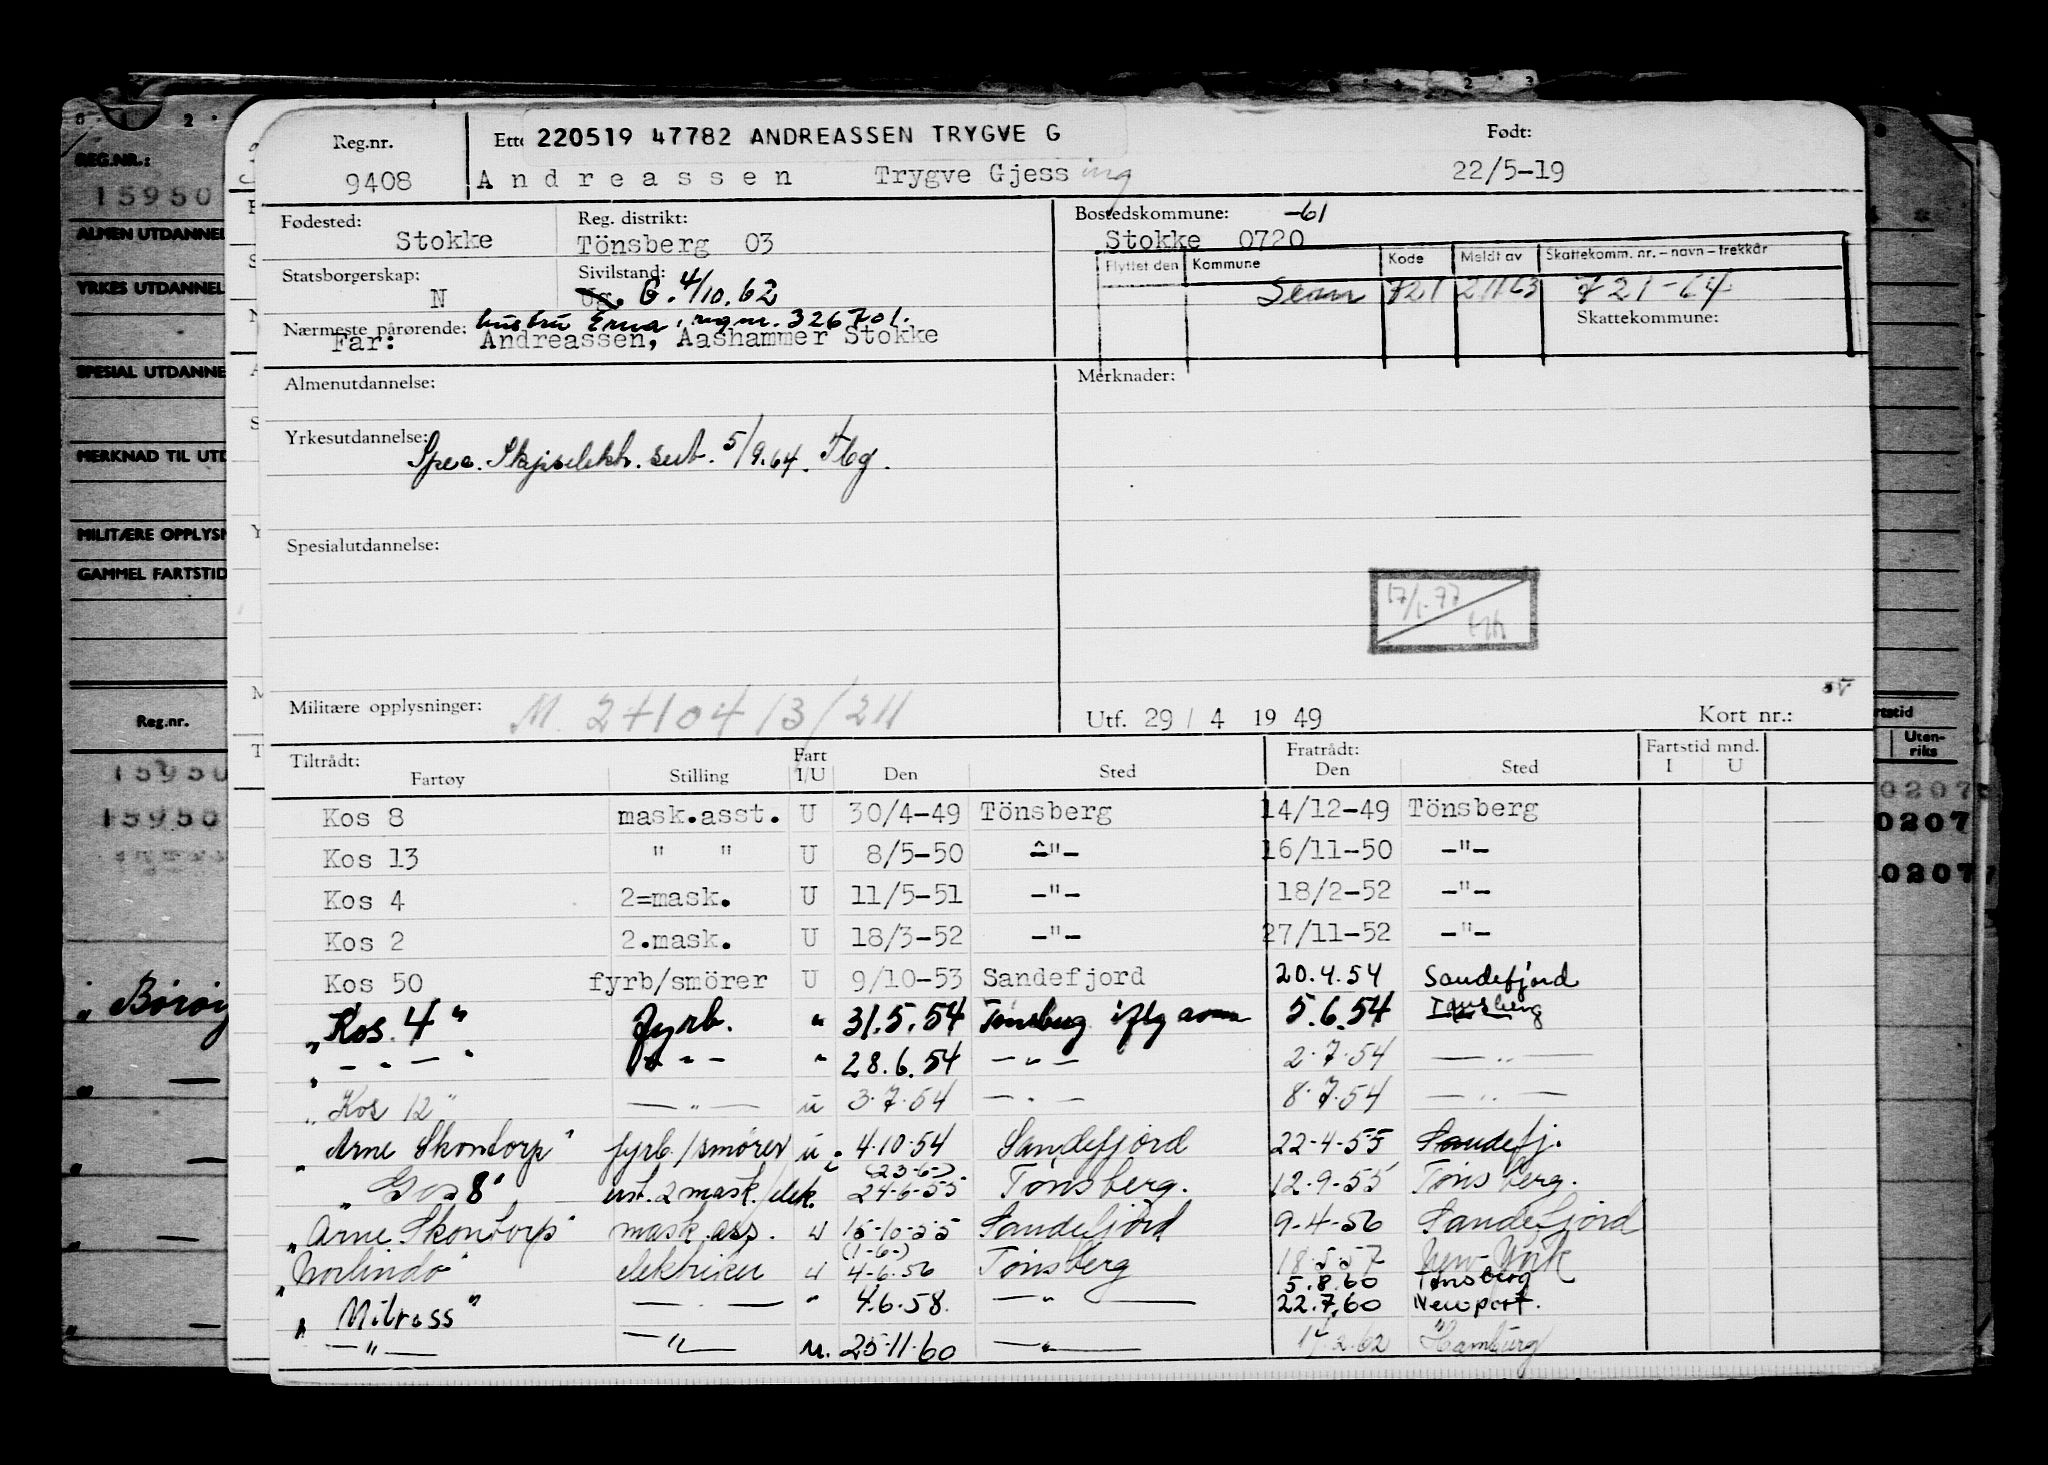 Reg.nr. 220519 47782 ANDREASSEN TRYGVE G Født:
9408 Andreassen Trygve Gjessing 22/5-19
Fødested: Reg. distrikt: Bostedskommune: -61
Stokke Tönsberg 03 Stokke 0720
Flyttet den Kommune Kode Meldt av Skattekomm. nr. - navn - trekkår
Statsborgerskap: Sivilstand: Sem 721 21163 721-64
N Ug. G. 4/10.62
Nærmeste pårørende: hustru Erna, reg nr. 326701. Skattekommune:
Far: Andreassen, Aashammer Stokke
Almenutdannelse: Merknader:
Yrkesutdannelse:
Spec. Skipselektr. sert. 5/9.64. Tbg.
Spesialutdannelse:
17/1-77
Militære opplysninger: M 24104 13/211 Utf. 29 / 4 19 49 Kort nr.:
Tiltrådt: Fart Fratrådt: Fartstid mnd.
Fartøy Stilling I/U Den Sted Den Sted I U
Kos 8 mask.asst. U 30/4-49 Tönsberg 14/12-49 Tönsberg
Kos 13 " " U 8/5-50 -"- 16/11-50 -"-
Kos 4 2=mask. U 11/5-51 -"- 18/2-52 -"-
Kos 2 2.mask. U 18/3-52 -"- 27/11-52 -"-
Kos 50 fyrb/smörer U 9/10-53 Sandefjord 20.4.54 Sandefjord
"Kos. 4" fyrb. " 31.5.54 Tönsberg 5.6.54 Tønsberg
" - " - " - " - " 28.6.54 - " - 2.7.54 - " -
"Kos 12" - " - u 3.7.54 - " - 8.7.54 - " -
"Arne Skontorp" fyrb./smører u 4.10.54 Sandefjord 22-4-55 Sandefj.
(23-6-)
"Gos 8" ust. 2 mask./elek. 24-6-55 Tønsberg. 12-9-55 Tønsberg.
"Arne Skontorp" mask.ass. u 15-10-55 Sandefjord 9-4-56 Sandefjord
(1-6-)
"Norlindo" elektriker u 4-6.56 Tønsberg 18.5.57 New-York
5.8.60 Tønsberg
"Mitross" - " - " 4.6.58. - " - 22.7.60 Newport.
- " - - " - u. 25.11.60 - " - 17.2.62 Hamburg
REG.NR.:
15950
ALMEN UTDANNEL
YRKES UTDANNEL
SPESIAL UTDANNE
MERKNAD TIL UTD
MILITÆRE OPPLYSN
GAMMEL FARTSTID
Reg.nr.
15950
15950
Uten-
riks
0207
0207
0207